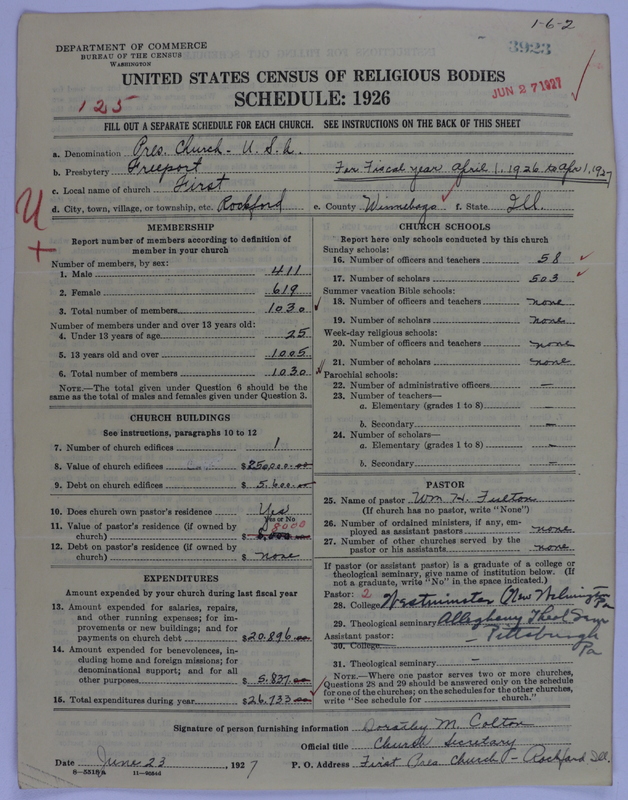 1-6-2
DEPARTMENT OF COMMERCE
BUREAU OF THE CENSUS
WASHINGTON
3923
UNITED STATES CENSUS OF RELIGIOUS BODIES
JUN 27 1927
125
SCHEDULE: 1926
FILL OUT A SEPARATE SCHEDULE FOR EACH CHURCH. SEE INSTRUCTIONS ON THE BACK OF THIS SHEET
a. Denomination Pres. Church - U.S.A.
b. Presbytery Freeport For Fiscal year April 1, 1926 to Apr 1, 1927
c. Local name of church First
d. City, town, village, or township, etc. Rockford e. County Winnebago f. State Ill.
U
+
MEMBERSHIP
Report number of members according to definition of
member in your church
Number of members, by sex:
1. Male 411
2. Female 619
3. Total number of members 1030
Number of members under and over 13 years old:
4. Under 13 years of age 25
5. 13 years old and over 1005
6. Total number of members 1030
NOTE.—The total given under Question 6 should be the
same as the total of males and females given under Question 3.
CHURCH BUILDINGS
See instructions, paragraphs 10 to 12
7. Number of church edifices 1
8. Value of church edifices $250,000.00
9. Debt on church edifices $5,600.00
10. Does church own pastor's residence Yes
Yes or No
11. Value of pastor's residence (if owned by
church) $ 8000
12. Debt on pastor's residence (if owned by
church) $ none
EXPENDITURES
Amount expended by your church during last fiscal year
13. Amount expended for salaries, repairs,
and other running expenses; for im-
provements or new buildings; and for
payments on church debt $20,896.00
14. Amount expended for benevolences, in-
cluding home and foreign missions; for
denominational support; and for all
other purposes $5,837.00
15. Total expenditures during year $26,733.00
CHURCH SCHOOLS
Report here only schools conducted by this church
Sunday schools:
16. Number of officers and teachers 58
17. Number of scholars 503
Summer vacation Bible schools:
18. Number of officers and teachers none
19. Number of scholars none
Week-day religious schools:
20. Number of officers and teachers none
21. Number of scholars none
Parochial schools:
22. Number of administrative officers —
23. Number of teachers—
a. Elementary (grades 1 to 8) —
b. Secondary —
24. Number of scholars—
a. Elementary (grades 1 to 8) —
b. Secondary —
PASTOR
25. Name of pastor Wm H. Fulton
(If church has no pastor, write "None")
26. Number of ordained ministers, if any, em-
ployed as assistant pastors none
27. Number of other churches served by the
pastor or his assistants none
If pastor (or assistant pastor) is a graduate of a college or
theological seminary, give name of institution below. (If
not a graduate, write "No" in the space indicated.)
Pastor: 2
28. College Westminster New Wilmington Pa
29. Theological seminary Allegheny Theol Sem
Assistant pastor: - Pittsburgh
30. College Pa
31. Theological seminary —
NOTE.—Where one pastor serves two or more churches,
Questions 28 and 29 should be answered only on the schedule
for one of the churches; on the schedules for the other churches,
write "See schedule for church."
Signature of person furnishing information Dorothy M. Colton
Official title Church Secretary
Date June 23, 1927 P. O. Address First Pres Church - Rockford Ill.
8-5518a 11-9084d